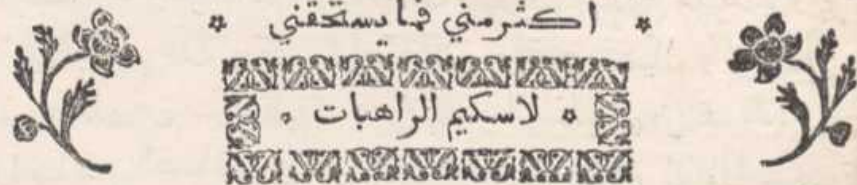 * اكثرمني فما يستحقني *
* لاسكيم الراهبات *